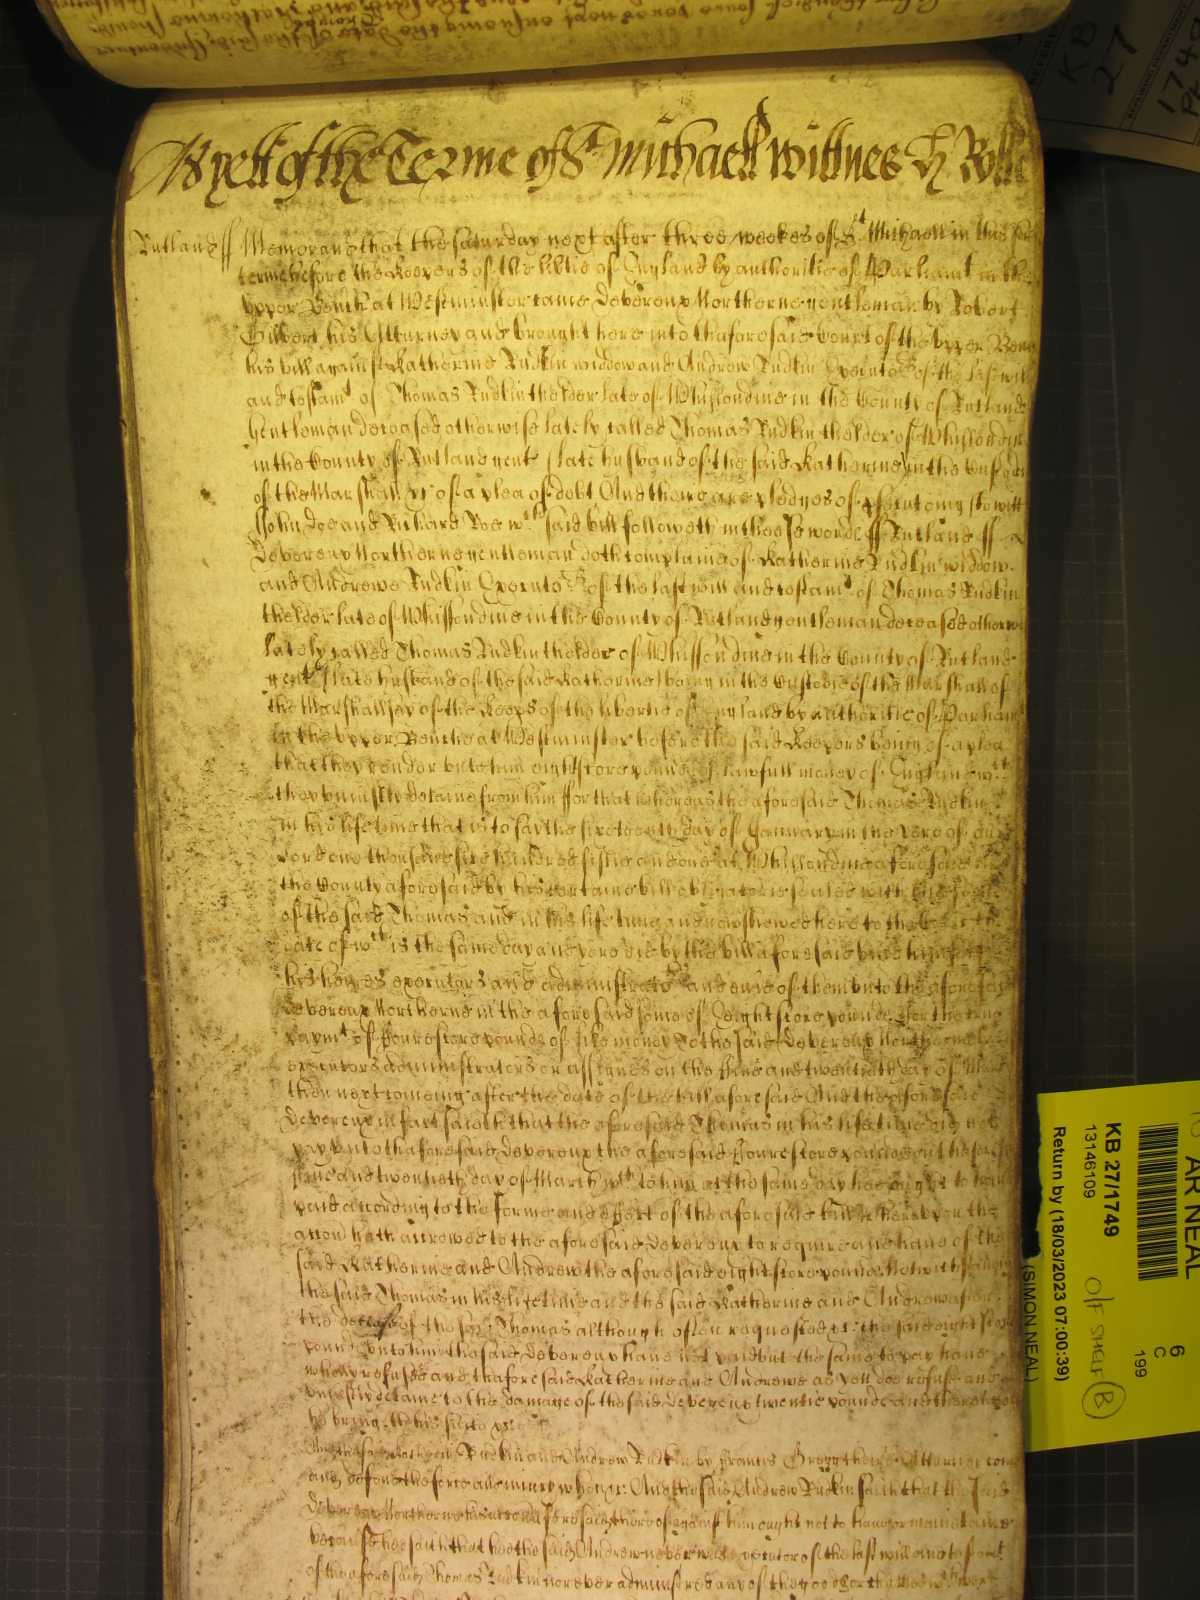 As yett of the Terme of St Michaell wittnes th Rolle
Rutland ff Memorand that the Saturday next after three weekes of St Michaell in this same
terme before the Keepers of the libtie of England by authoritie of Parliamt in the
Upper Bench at Westminster came Devereux Northerne gentleman by Robert
Gilbert his Atturney and brought here into thaforesaid Court of the Upper Bench
his bill against Katherine Rudkin widdow and Andrew Rudkin Executors of the last will
and testamt of Thomas Rudkin thelder late of Whissondine in the County of Rutland
gentleman deceased otherwise lately called Thomas Rudkin thelder of Whissondine
in the County of Rutland gent (late husband of the said Katherine) in the Custodie
of the Marshall &c of a plea of debt And there are pledges of psecuting to witt
John Doe and Richard Roe wch said bill followeth in these words ff Rutland ff
Devereux Northerne gentleman doth complaine of Katherine Rudkin widdow
and Andrewe Rudkin Executors of the last will and testamt of Thomas Rudkin
thelder late of Whissondine in the County of Rutland gentleman deceased otherwise
lately called Thomas Rudkin thelder of Whissondine in the County of Rutland
gent (late husband of the said Katherine) being in the Custodie of the Marshall of
the Marshallsey of the Keeps of the libertie of England by authoritie of Parliamt
in the upper Bench at Westminster before the said Keepers being of a plea
that they render unto him eightscore pounds of lawfull money of England wch
they uniustly detaine from him For that whereas the aforesaid Thomas Rudkin
in his life time that is to say the sixteenth day of January in the yere of our
Lord one thousand six hundred fiftie and one at Whissondine aforesaid in
the County aforesaid by his certaine bill obligatorie sealed with the seale
of the said Thomas and in his life time and now shewed here to the Court the
date of wch is the same day and yere did by the bill aforesaid bind himselfe
his heyres executors and administrators and evie of them unto the aforesaid
Devereux Northerne in the aforesaid some of Eightscore pounds For the true
paymt of Fourescore pounds of like money To the said Devereux Northerne his
executors administrators or assignes on the five and twentieth day of March
then next comeing after the date of the bill aforesaid And the aforesaid
Devereux in fact saieth that the aforesaid Thomas in his life time did not
pay unto thaforesaid Devereux the aforesaid Fourescore pounds on the said
five and twentieth day of March wch to him at the same day hee ought to have
paid according to the forme and effect of the aforesaid bill Whereupon the
accon hath accrewed to the aforesaid Devereux to require and have of the
said Katherine and Andrew the aforesaid eightscore pounds Notwithstanding
the said Thomas in his life time and the said Katherine and Andrew after
the decease of the said Thomas although often requested &c the said eightscore
pounds unto him the said Devereux have not paid but the same to pay have
wholly refused and thaforesaid Katherine and Andrewe as yett doe refuse and
uniustly detaine to the damage of the said Devereux twentie pounds and thereupon
he bringeth his suite &c
And the said Katherin Rudkin and Andrew Rudkin by Francis Gregg their Atturney come
and defend the force and iniury when &c And the said Andrew Rudkin saith that the said
Devereux Northerne his accon aforesaid thereof against him ought not to have or mainteine
because hee saith that hee the said Andrew never was executor of the last will and testamt
of the aforesaid Thomas Rudkin nor ever administred any of the goods or chattells wch were
KB
27
1749
KB 27/1749
13146109
Return by (18/03/2023 07:00:39)
(SIMON NEAL)
O/F SHELF B
AR NEAL
6
C
199